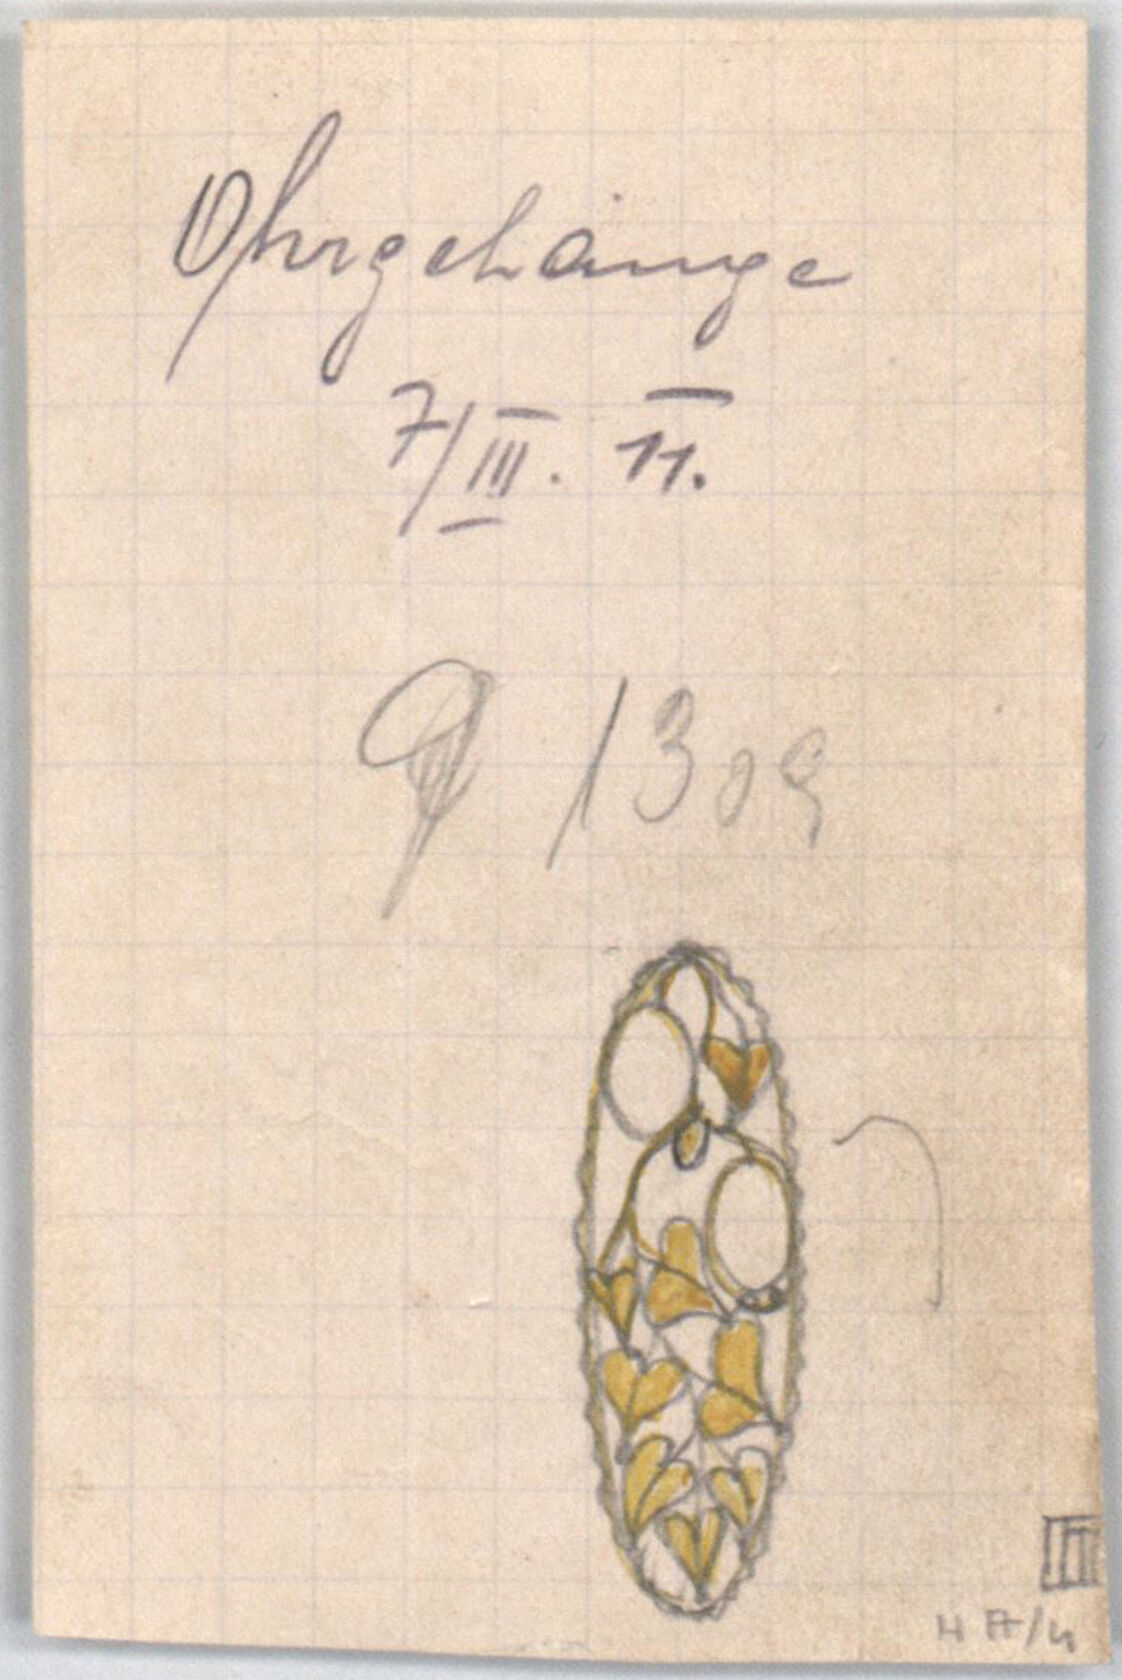 Ohrgehänge
7/III. 11.
G 1309